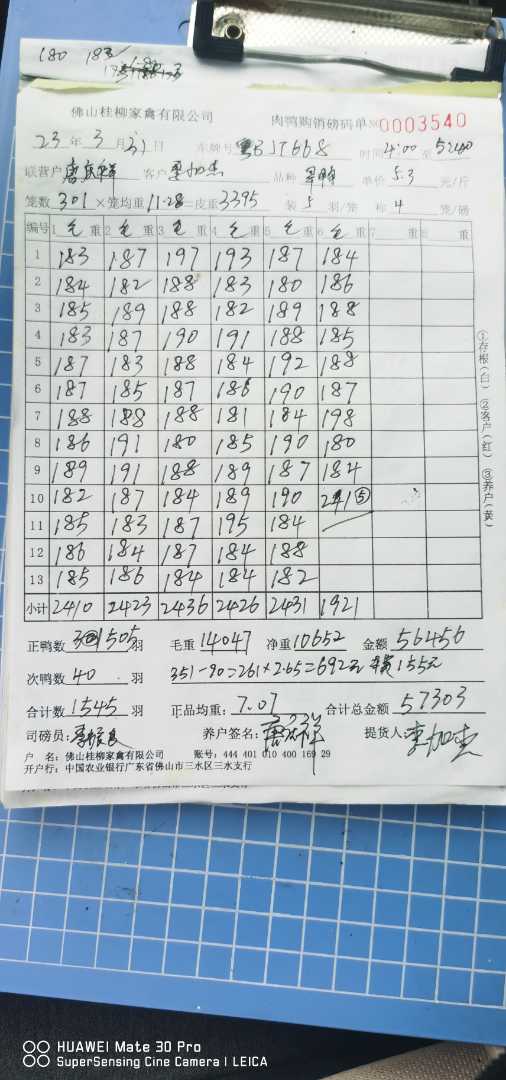 180 183
佛山桂柳家禽有限公司 肉鸭购销磅码单 № 0003540
23 年 3 月 31 日 车牌号 粤BJT668 时间 4:00 至 5:40
联营户 唐庆祥 客户 李加杰 品种 单价 5.3 元/斤
笼数 301 × 笼均重 11.28 = 皮重 3395 装 5 羽/笼 称 4 笼/磅
编号 1 毛 重 2 毛 重 3 毛 重 4 毛 重 5 毛 重 6 毛 重 7 重 8 重
1 183 187 197 193 187 184
2 184 182 188 183 180 186
3 185 189 188 182 189 188
4 183 187 190 191 188 185
5 187 183 188 184 192 188
6 187 185 187 186 190 187
7 188 188 188 181 184 198
8 186 191 180 185 190 180
9 189 191 188 189 187 184
10 182 187 184 189 190 241⑤
11 185 183 187 195 184
12 186 184 187 184 188
13 185 186 184 184 182
小计 2410 2423 2436 2426 2431 1921
①存根(白) ②客户(红) ③养户(黄)
正鸭数 1505 羽 毛重 14047 净重 10652 金额 56456
次鸭数 40 羽 351-90=261×2.65=692元 155元
合计数 1545 羽 正品均重: 7.07 合计总金额 57303
司磅员: 养户签名: 唐庆祥 提货人: 李加杰
户 名: 佛山桂柳家禽有限公司 账号: 444 401 010 400 169 29
开户行: 中国农业银行广东省佛山市三水区三水支行
HUAWEI Mate 30 Pro
SuperSensing Cine Camera | LEICA